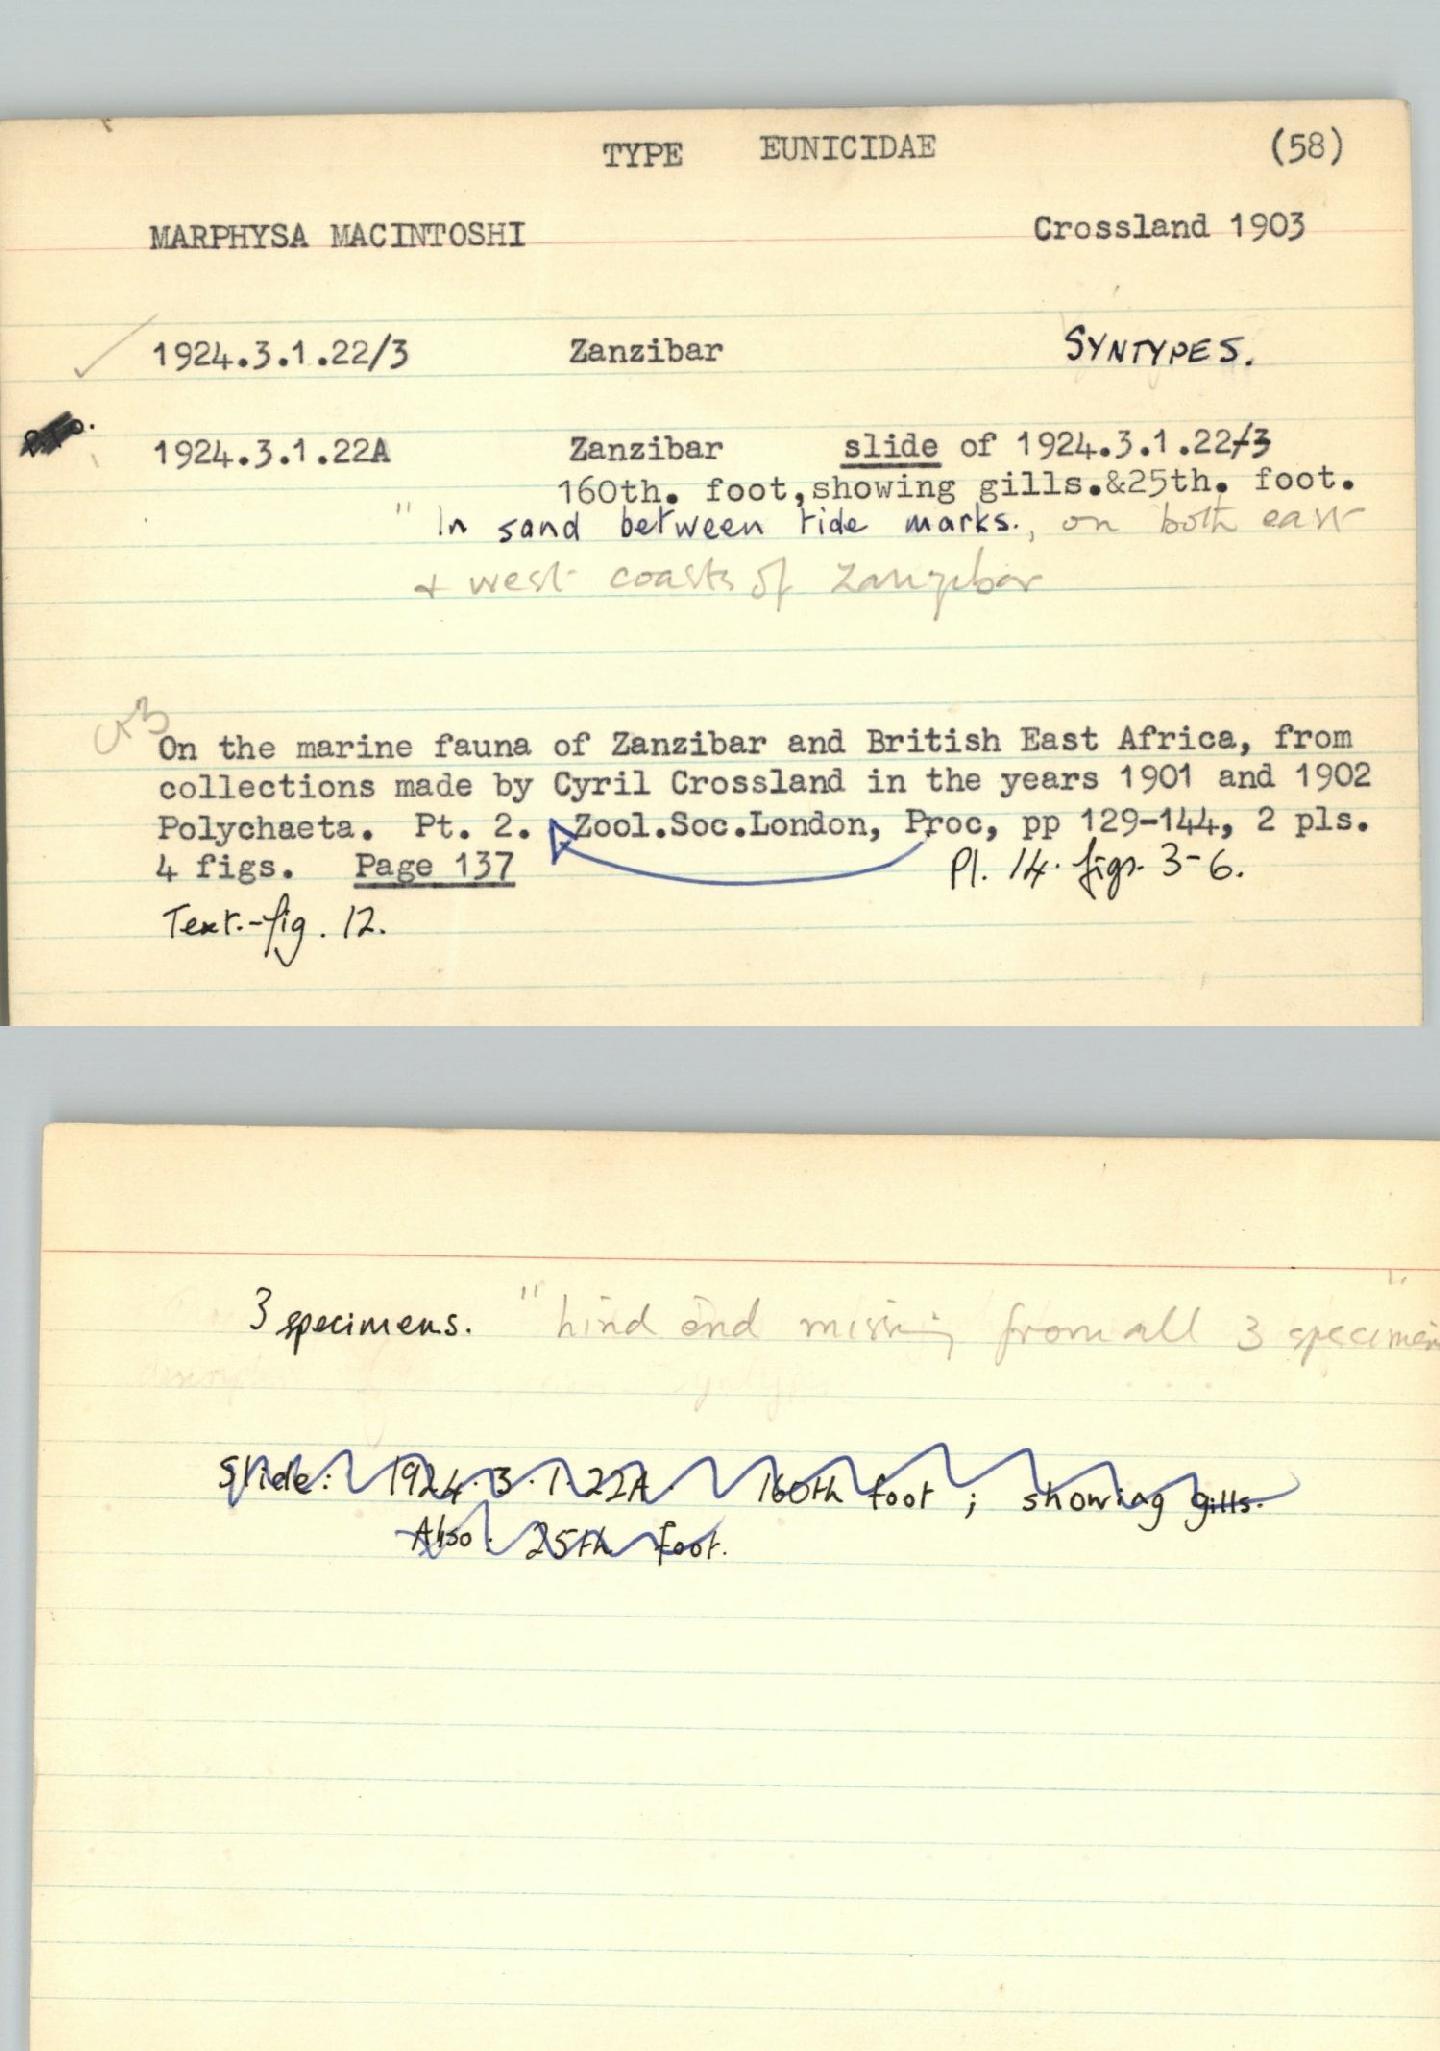 TYPE EUNICIDAE (58)
MARPHYSA MACINTOSHI Crossland 1903
1924.3.1.22/3 Zanzibar SYNTYPES.
1924.3.1.22A Zanzibar slide of 1924.3.1.22/3
160th. foot,showing gills.&25th. foot.
" In sand between tide marks., on both east
& west coasts of Zanzibar
On the marine fauna of Zanzibar and British East Africa, from
collections made by Cyril Crossland in the years 1901 and 1902
Polychaeta. Pt. 2. Zool.Soc.London, Proc, pp 129-144, 2 pls.
4 figs. Page 137 Pl. 14. figs. 3-6.
Text.-fig. 12.
3 specimens. "hind end missing from all 3 specimen
Slide: 1924.3.1.22A. 160th foot ; showing gills.
Also: 25th foot.